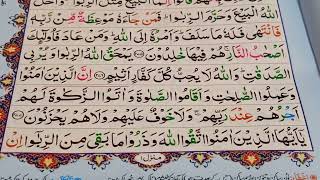 اللّٰهُ الْبَيْعَ وَحَرَّمَ الرِّبٰوا فَمَنْ جَآءَهٗ مَوْعِظَةٌ مِّنْ رَّبِّهٖ
فَانْتَهٰى فَلَهٗ مَا سَلَفَ وَاَمْرُهٗٓ اِلَى اللّٰهِ وَمَنْ عَادَ فَاُولٰٓئِكَ
اَصْحٰبُ النَّارِ هُمْ فِيْهَا خٰلِدُوْنَ يَمْحَقُ اللّٰهُ الرِّبٰوا وَيُرْبِى
الصَّدَقٰتِ وَاللّٰهُ لَا يُحِبُّ كُلَّ كَفَّارٍ اَثِيْمٍ اِنَّ الَّذِيْنَ اٰمَنُوْا
وَعَمِلُوا الصّٰلِحٰتِ وَاَقَامُوا الصَّلٰوةَ وَاٰتَوُا الزَّكٰوةَ لَهُمْ
اَجْرُهُمْ عِنْدَ رَبِّهِمْ وَلَا خَوْفٌ عَلَيْهِمْ وَلَا هُمْ يَحْزَنُوْنَ
يٰٓاَيُّهَا الَّذِيْنَ اٰمَنُوا اتَّقُوا اللّٰهَ وَذَرُوْا مَا بَقِىَ مِنَ الرِّبٰٓوا اِنْ
منزل